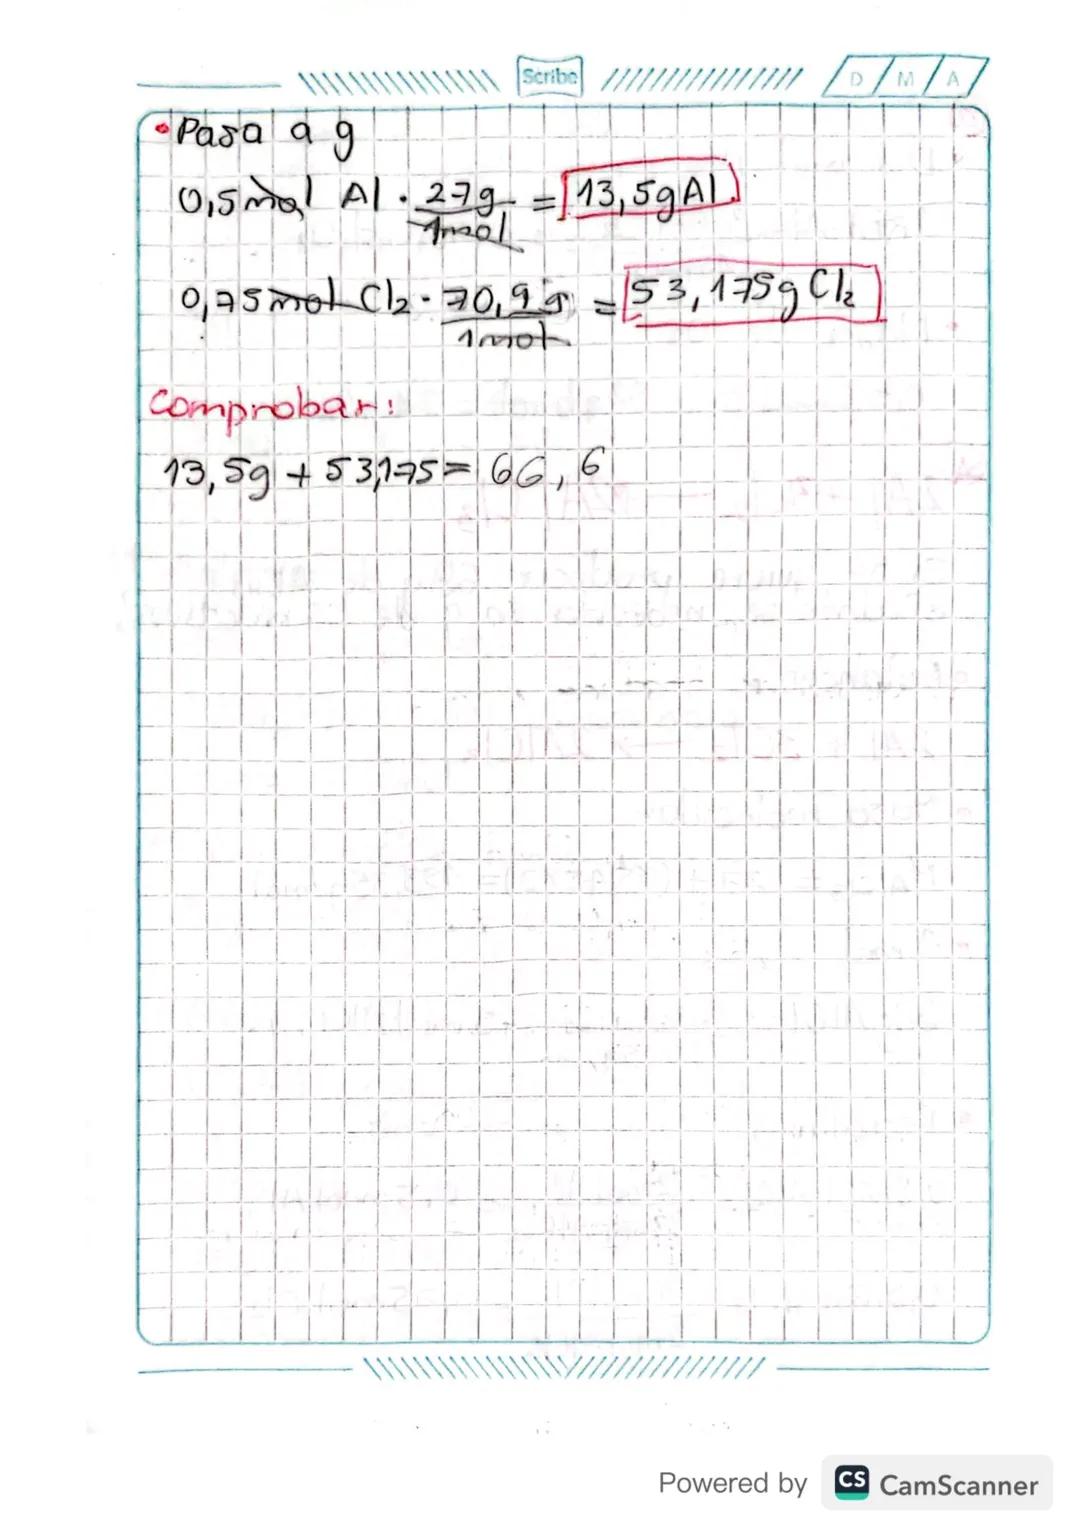 Scribe
D M A
• Pasa a g
0,5 mol Al · 27g / 1mol = 13,5g Al
0,75 mol Cl2 · 70,9 g / 1 mol = 53,175g Cl2
Comprobar:
13,5g + 53,175 = 66,6
Powered by CS CamScanner